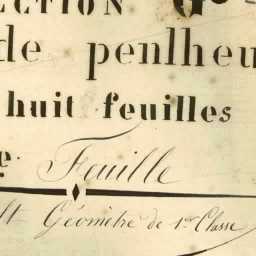 ECTION G
de penlheu
huit feuilles
e Feuille
lt Géomètre de 1re Classe